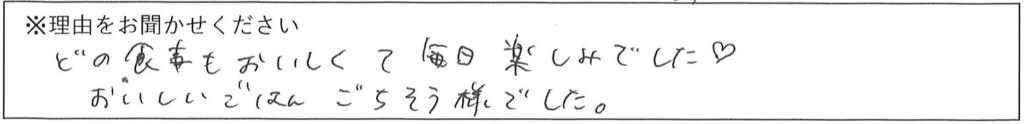 ※理由をお聞かせください
どの食事もおいしくて毎日楽しみでした♡
おいしいごはんごちそう様でした。